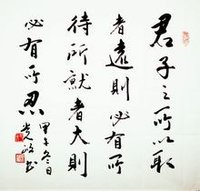 君子之所以取
者遠則必有所
待所就者大則
必有所忍
甲午冬日